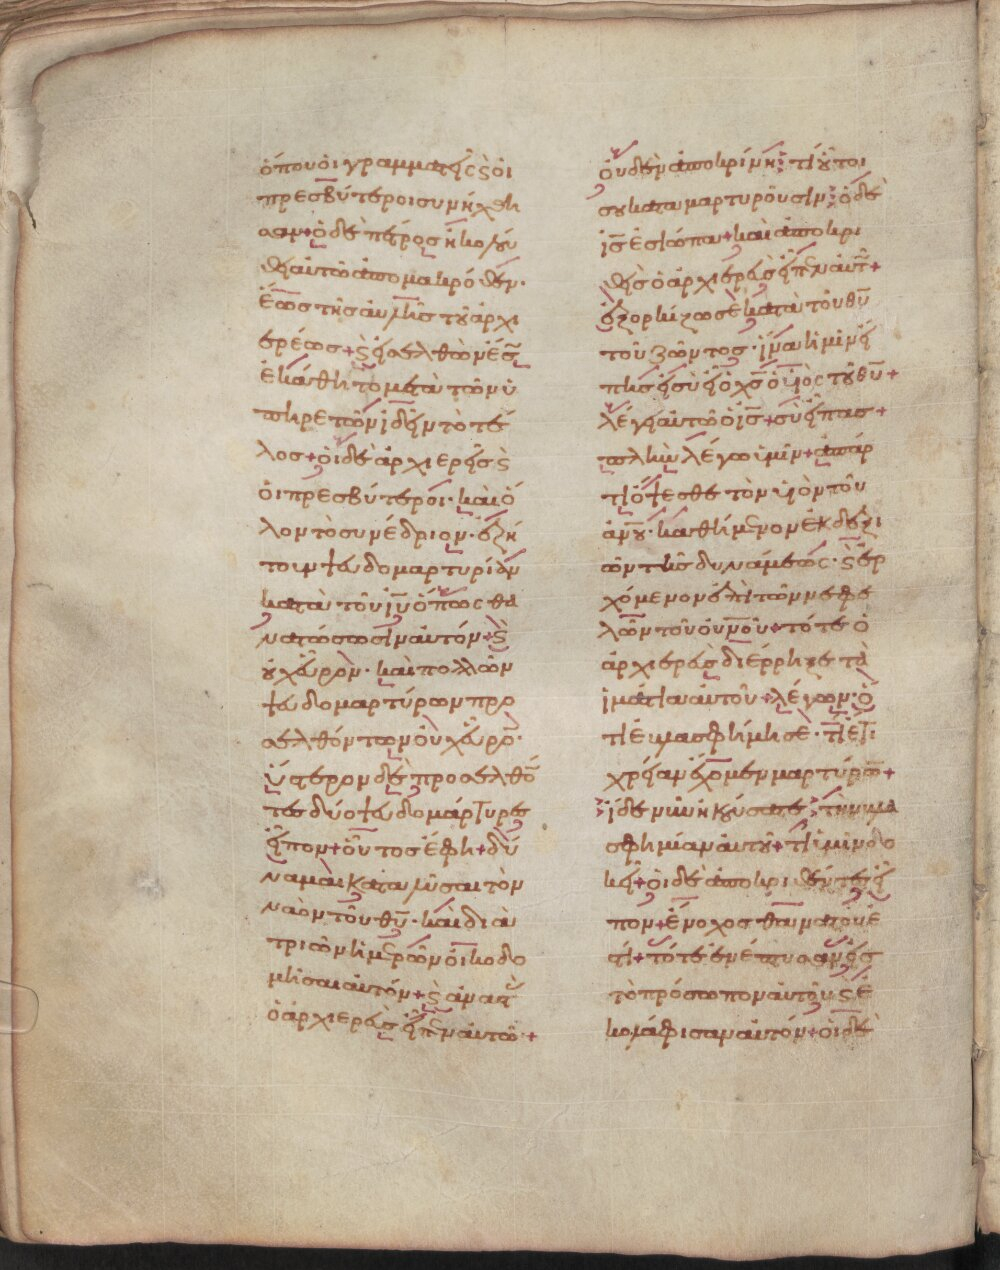 ὅπου οἱ γραμματεῖς ϛ οἱ
πρεσβύτεροι συνήχθη
σαν + ὁ δὲ πέτρος ἠκολού
θει αὐτῶ ἀπομακρόθεν ·
ἕως τῆς αὐλῆς τοῦ ἀρχι
ερέως + ϛ εἰσελθὼν ἔσω
ἐκάθητο μετὰ τῶν ὑ
πηρετῶν ἰδεῖν τὸ τέ
λος + οἱ δὲ ἀρχιερεῖς ϛ
οἱ πρεσβύτεροι · καὶ ὅ
λον τὸ συνέδριον · ἐζή
τουν ψευδομαρτυρίαν
κατὰ τοῦ ἰῦ ὅπως θα
νατώσωσιν αὐτόν + ϛ
οὐχ εὗρον · καὶ πολλῶν
ψευδομαρτύρων προ
σελθόντων οὐχ εὗρον ·
ὕστερον δὲ προσελθό
τες δύο ψευδομάρτυρες
εἶπον + οὗτος ἔφη + δύ
ναμαι καταλῦσαι τὸν
ναὸν τοῦ θῦ · καὶ διὰ
τριῶν ἡμερῶν οἰκοδο
μῆσαι αὐτόν + ϛ ἀναστὰς
ὁ ἀρχιερεὺς εἶπεν αὐτῶ · +
οὐδὲν ἀποκρίνη ; τί οὗτοί
σου καταμαρτυροῦσιν ; ὁ δὲ
ἰς ἐσιώπα + καὶ ἀποκρι
θεὶς ὁ ἀρχιερεὺς εἶπεν αὐτῶ +
ἐξορκίζω σὲ κατὰ τοῦ θῦ
τοῦ ζῶντος · ἵνα ἡμῖν εἴ
πης εἰ σὺ εἶ ὁ χς ὁ υἱὸς τοῦ θῦ +
λέγει αὐτῶ ὁ ἰς + σὺ εἶπας +
πλὴν λέγω ὑμῖν + ἀπάρ
τι ὄψεσθε τὸν υἱὸν τοῦ
ἀνοῦ · καθήμενον ἐκ δεξι
ῶν τῆς δυνάμεως · ϛ ἐρ
χόμενον ἐπὶ τῶν νεφε
λῶν τοῦ οὐνοῦ + τότε ὁ
ἀρχιερεὺς διέρρηξε τὰ
ἱμάτια αὐτοῦ + λέγων · ὅ
τι ἐβλασφήμησε · τί ἔτι
χρείαν ἔχομεν μαρτύρων +
ἴδε νῦν ἠκούσατε ; τὴν βλα
σφημίαν αὐτοῦ + τί ὑμῖν δο
κεῖ + οἱ δὲ ἀποκριθέντες εἶ
πον + ἔνοχος θανάτου ἐ
στί + τότε ἐνέπτυσαν εἰς
τὸ πρόσωπον αὐτοῦ ϛ ἐ
κολάφισαν αὐτόν + οἱ δὲ